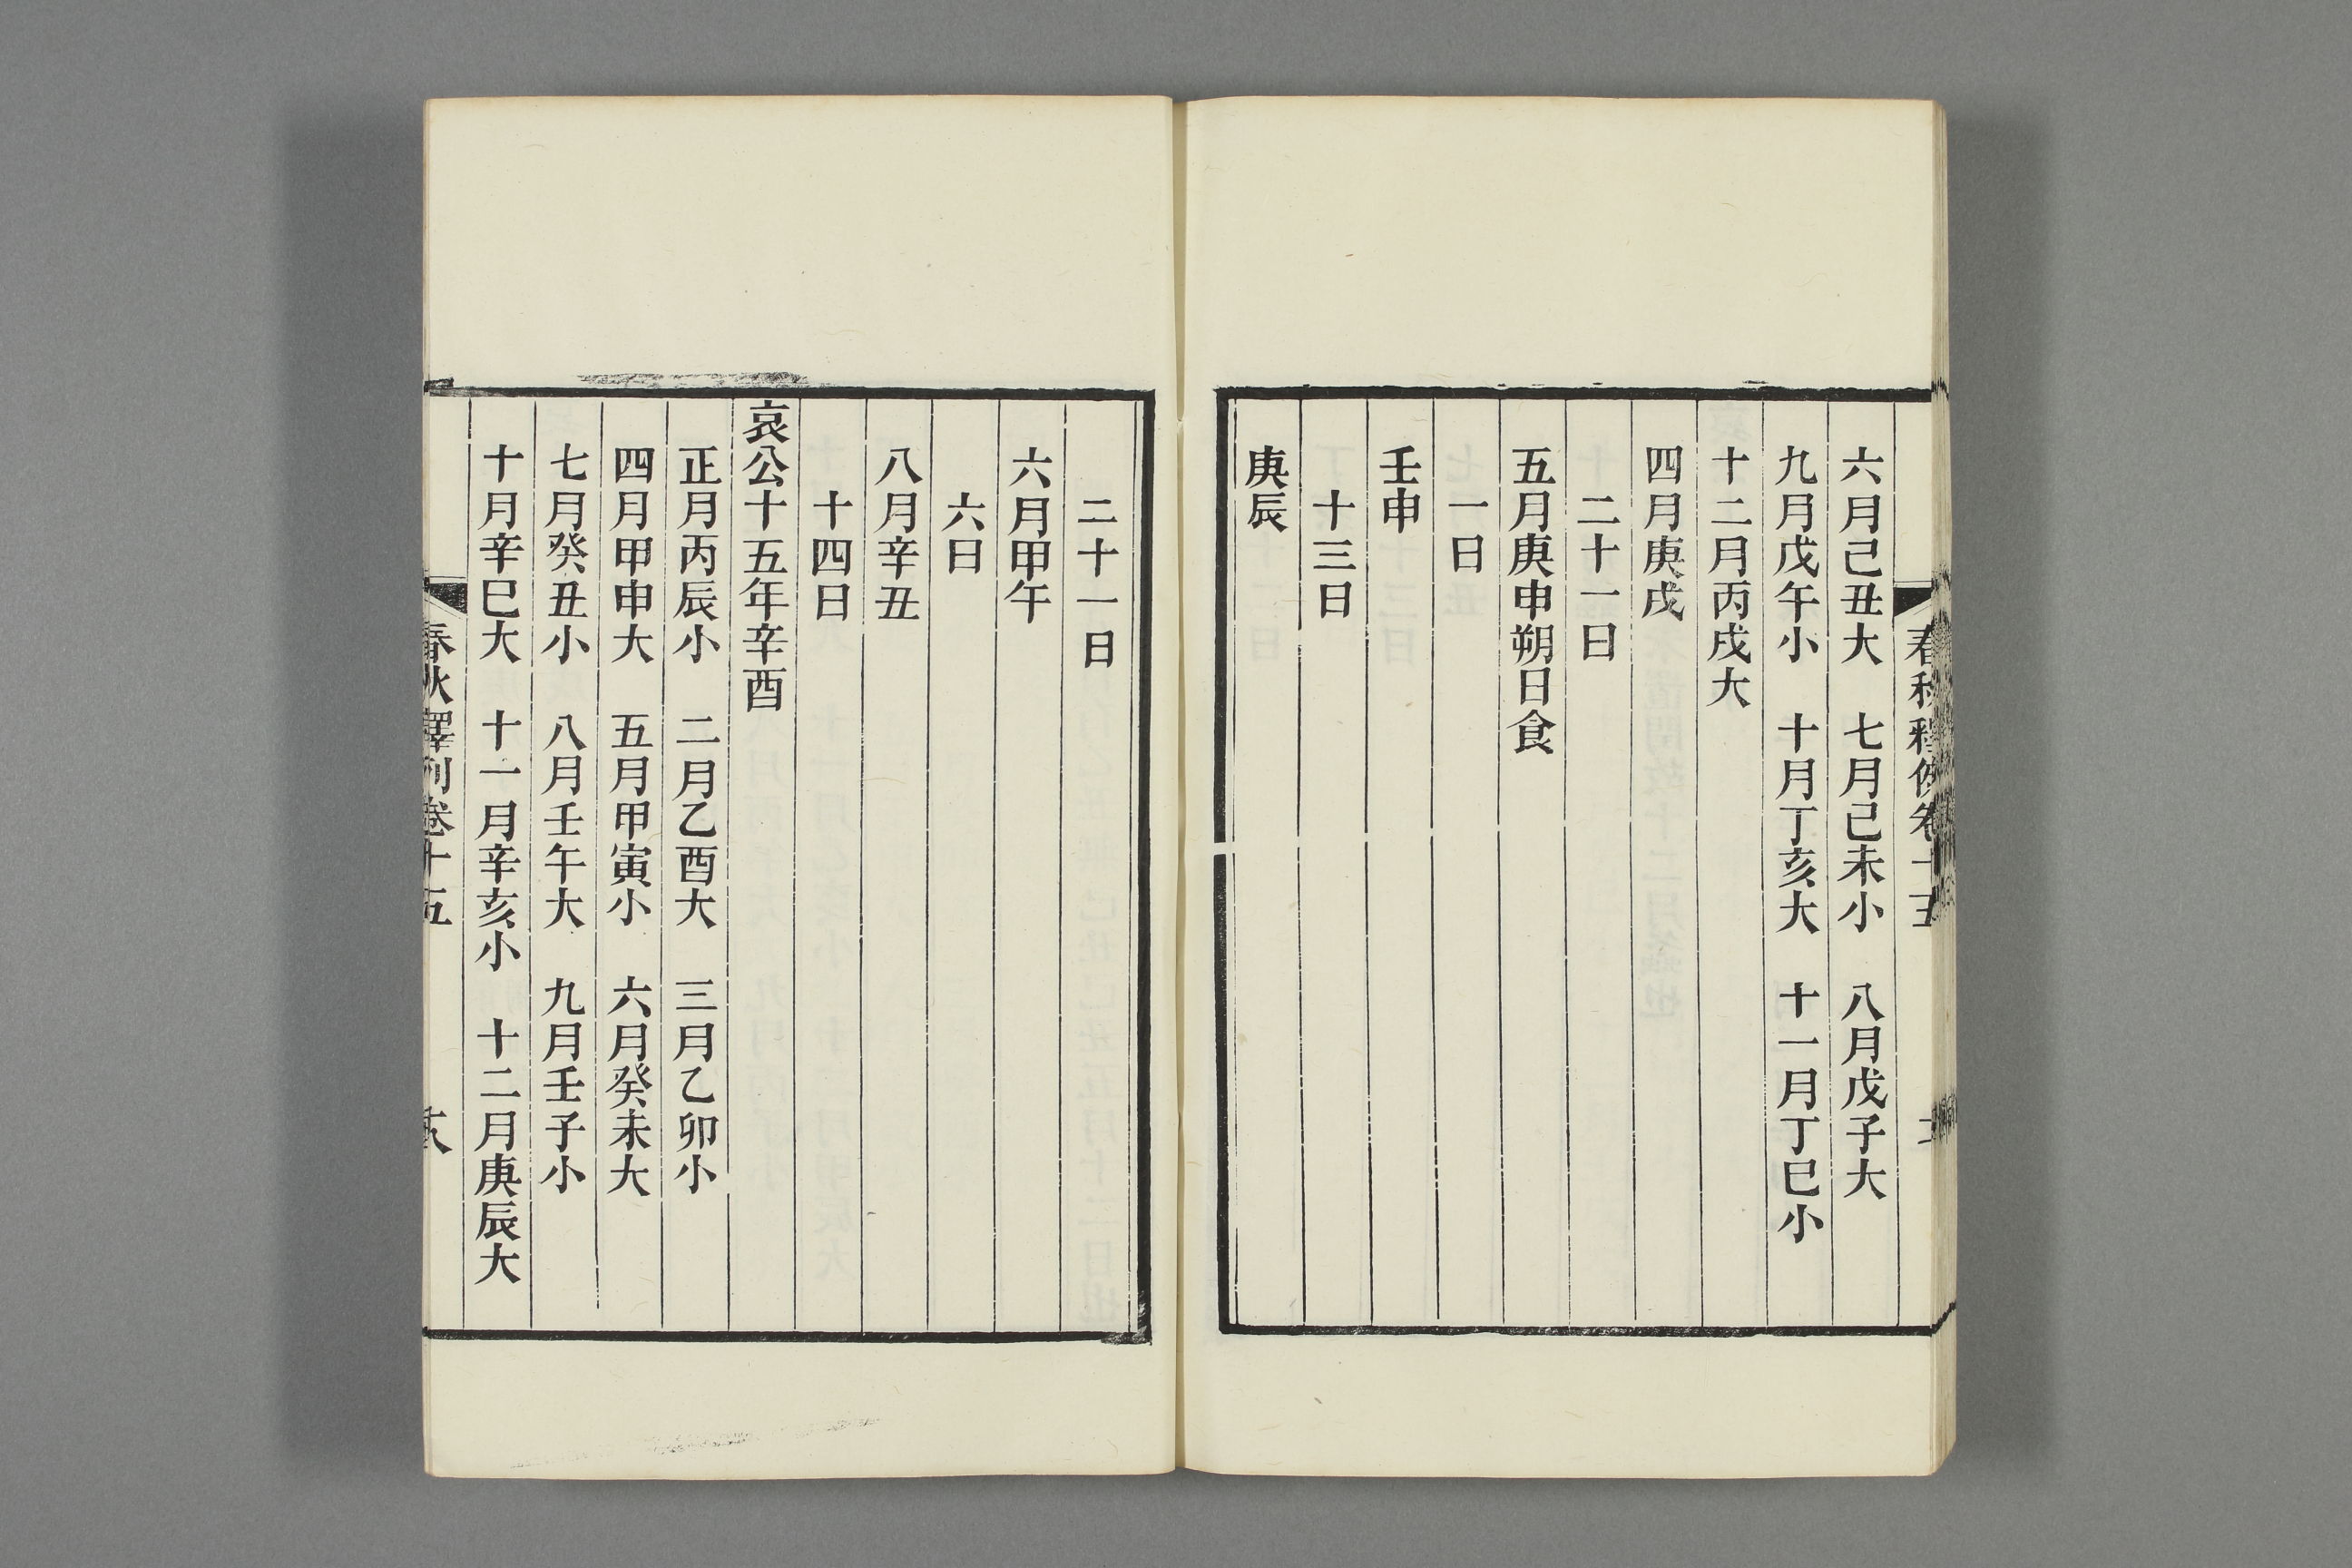 春秋釋例卷十五
六月己丑大　七月己未小　八月戊子大
九月戊午小　十月丁亥大　十一月丁巳小
十二月丙戌大
四月庚戌
二十一日
五月庚申朔日食
一日
壬申
十三日
庚辰
二十一日
六月甲午
六日
八月辛丑
十四日
哀公十五年辛酉
正月丙辰小　二月乙酉大　三月乙卯小
四月甲申大　五月甲寅小　六月癸未大
七月癸丑小　八月壬午大　九月壬子小
十月辛巳大　十一月辛亥小　十二月庚辰大
春秋釋例卷十五